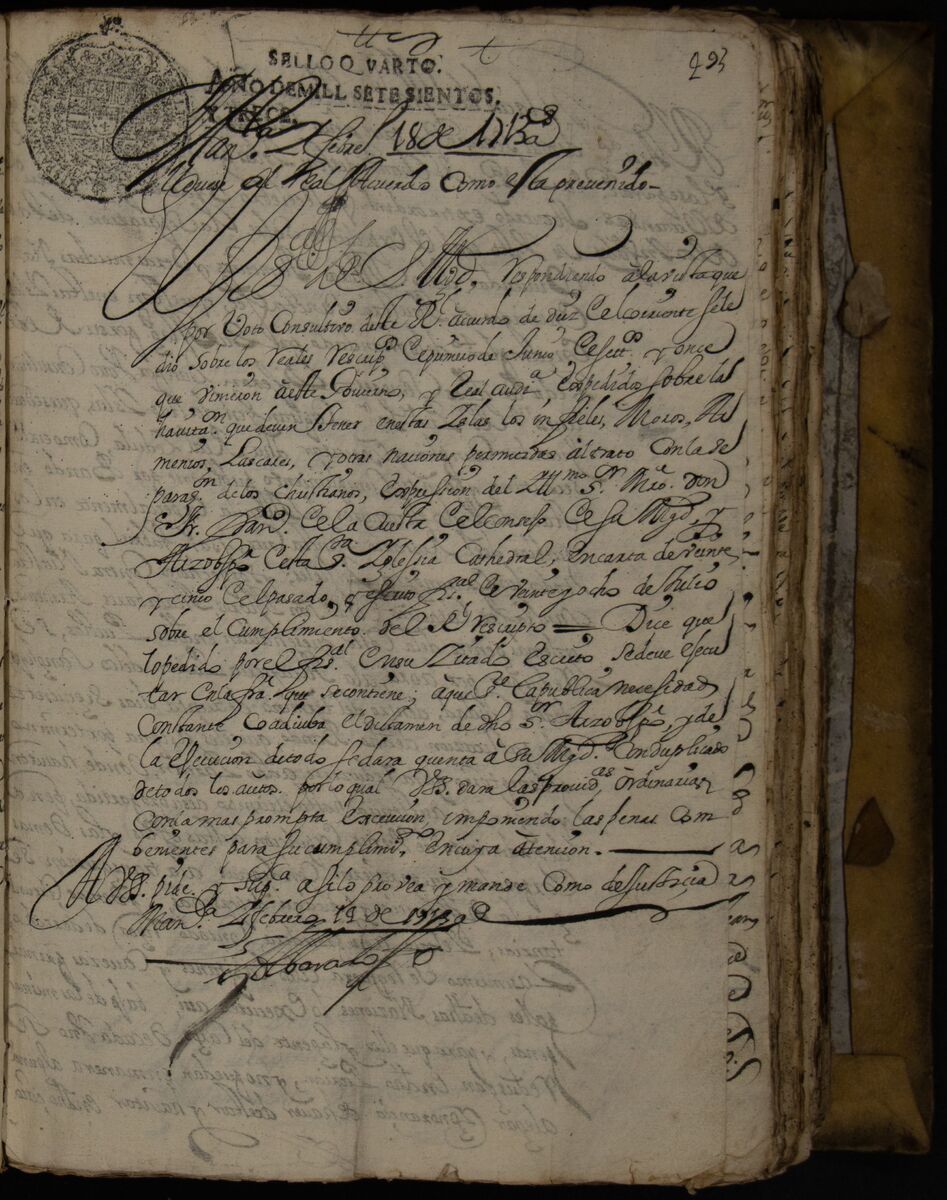 293
SELLO QVARTO.
AÑO DE MILL SETE SIENTOS,
Y TRECE.
Man.ª y febrero 18 de 1713 as
Lleuese al Real Acuerdo Como esta preuenido
El de S. Mgd, respondiendo a la vista que
por Voto Consultivo deste Rl. acuerdo de diez de el corriente se le
dio sobre los reales rescriptos de primero de Junio de sett.os y once
que vinieron a este Gouierno, y Real audi.ª expedidos sobre las
hauita.on que deuen tener en estas Yslas los infieles, Moros, Ar
menios, Lascares, y otras naciones permitidas al trato con la se
paras.on de los christianos, expression del Yll.mo S.r Mro. Don
Fr. Fran.co de la Cuesta de el consejo de su Mgd, y
Arzobp.o desta S.ta Yglessia Cathedral, en carta de veinte
y cinco de el pasado, y escrito fis.al de veinte y ocho de Julio
sobre el Cumplimiento del Rl rescripto = Dice que
lo pedido por el fis.al en su Zitado escrito se deue efecu
tar en la fra. que se contiene; a que la publica necesidad
constante coadiuba el dictamen de dho S.r Arzobp.o, y de
la execucion de todo se dara quenta a su Mgd. con duplicado
de todos los autos. por lo qual VS. dara las provid.as ordinarias
con la mas prompta execucion, imponiendo las penas com
benientes para su cumplim.to, en cuya atencion.
A VS. pide y sup.ca asi lo provea y mande como de Justicia
Man.ª y febrero 18 de 1713 as
Albarado